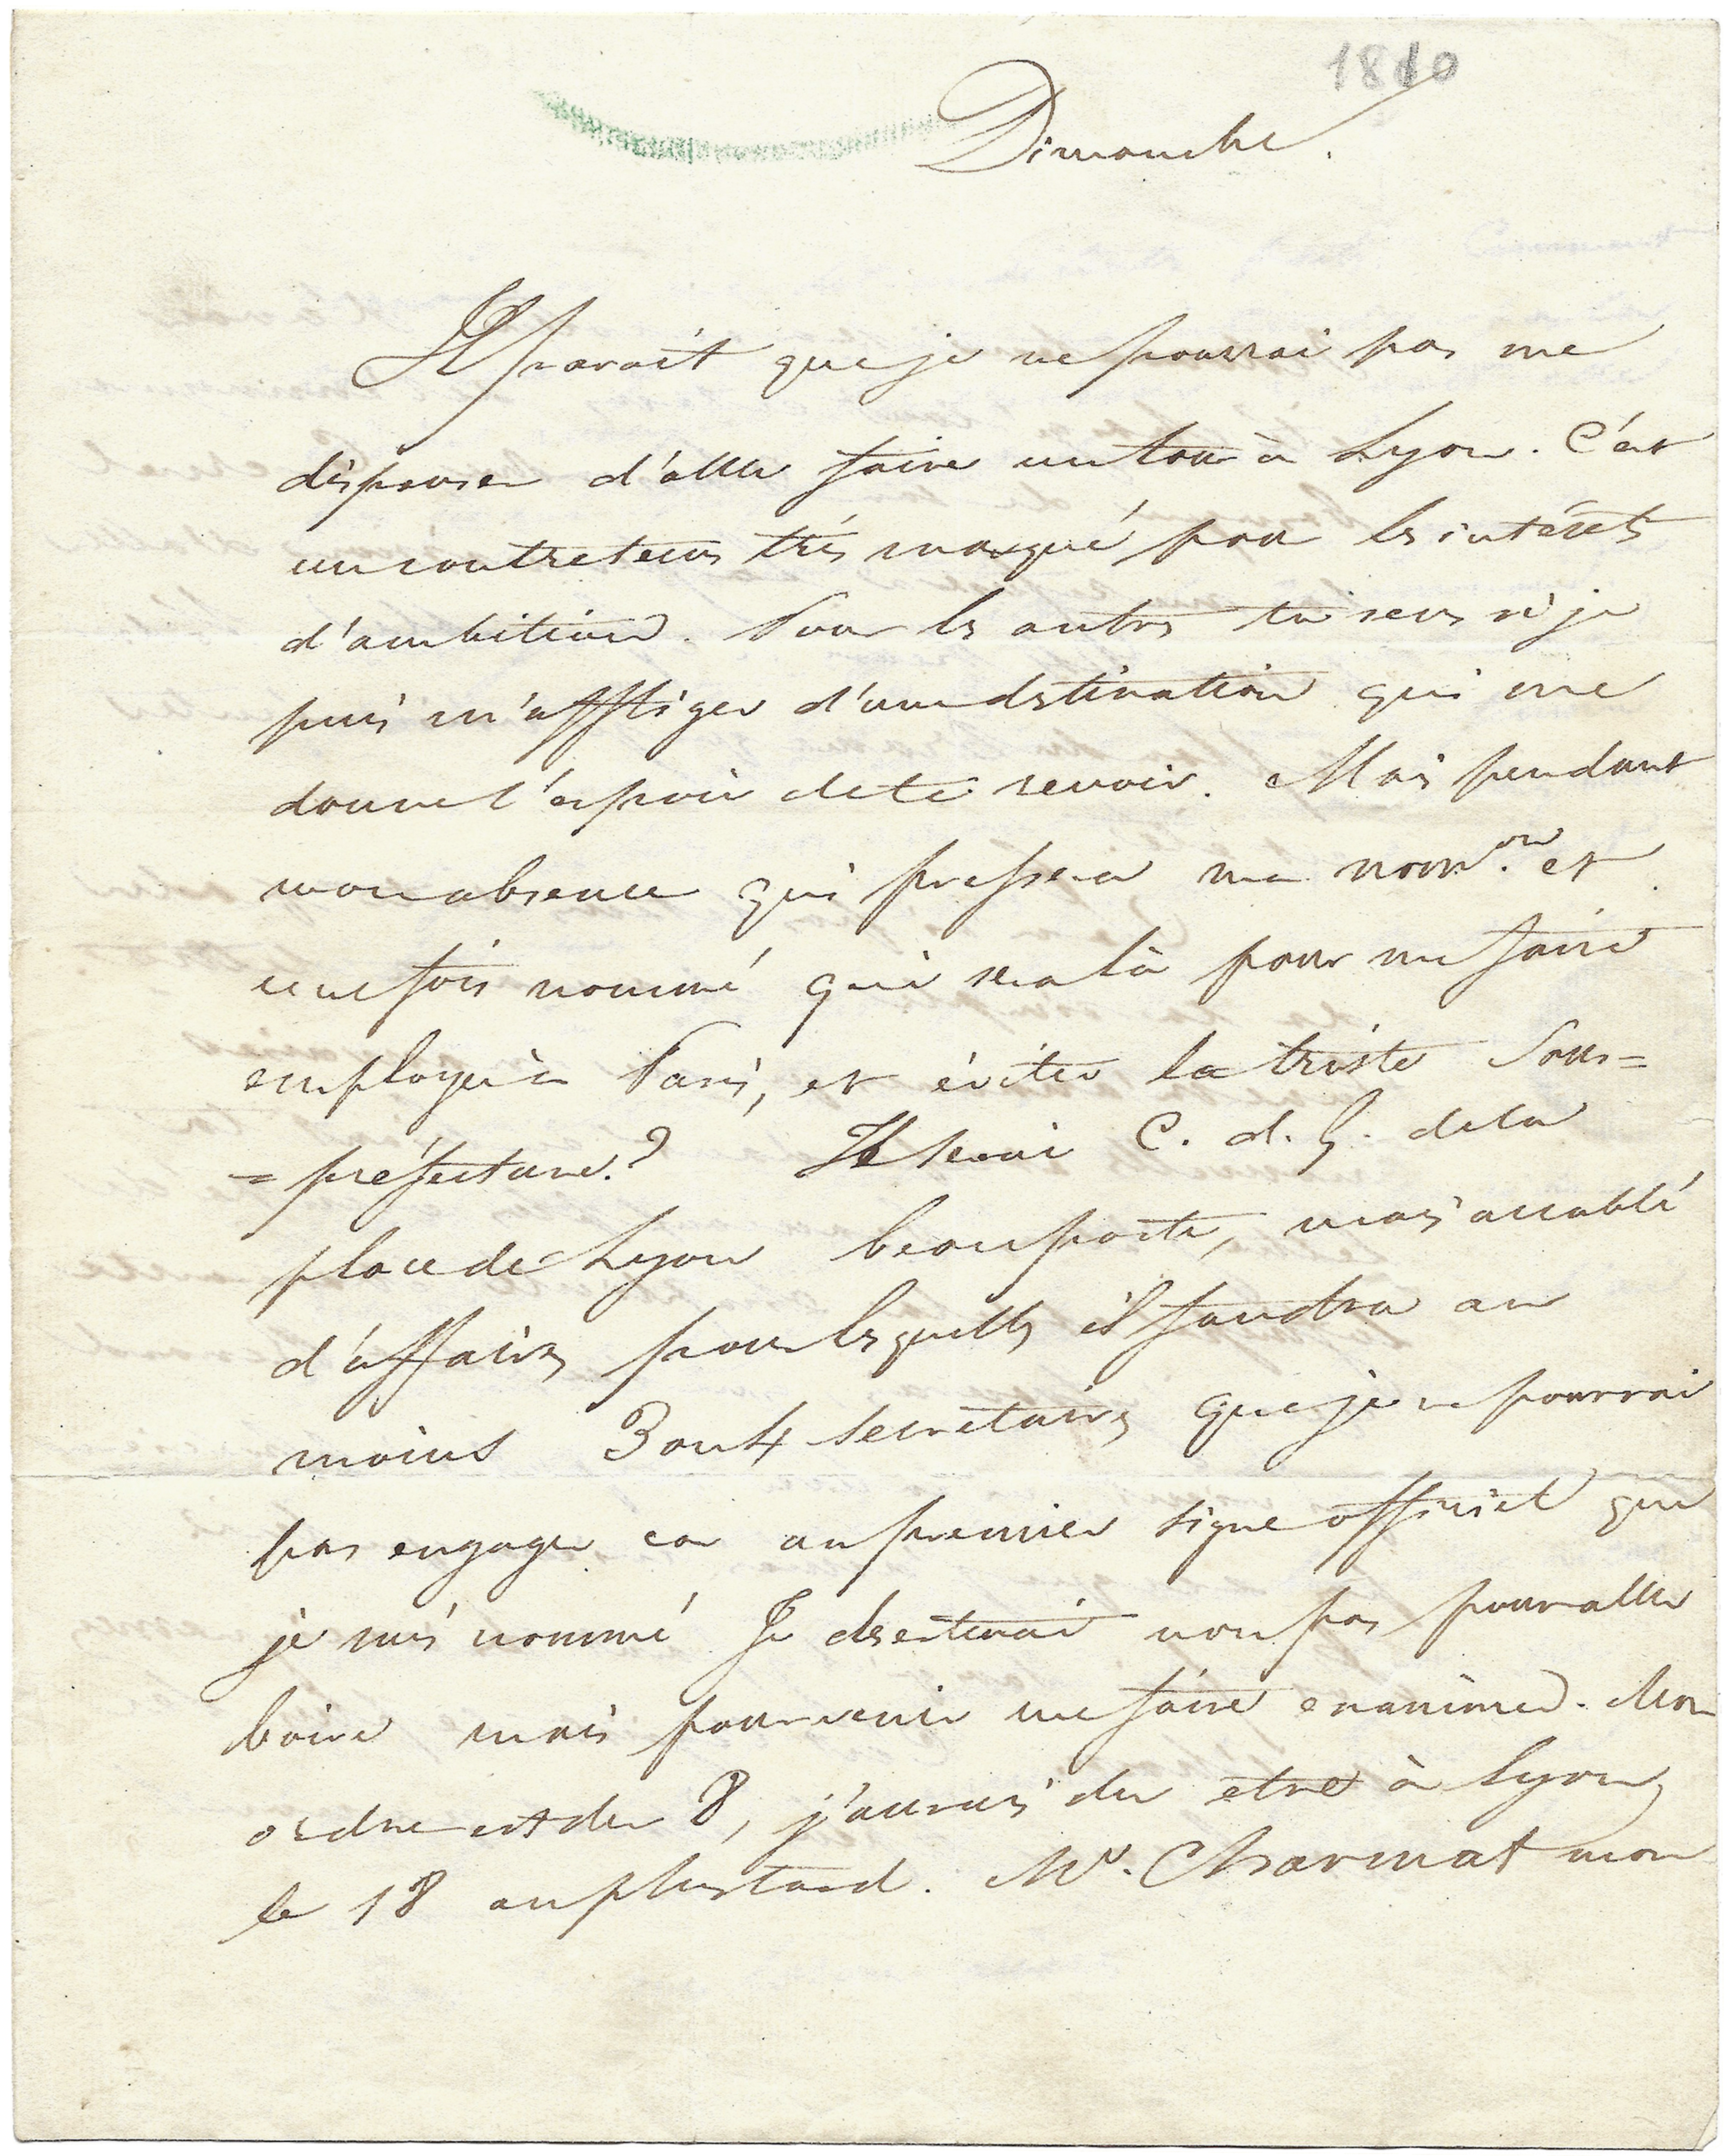 1810
Dimanche.
Il paroit que je ne pourrai pas me
dispenser d'aller faire un tour à Lyon. C'est
un contretems très marqué pour les intérets
d'ambition. Pour les autres tu sens si je
puis m'affliger d'une destination qui me
donne l'espoir de te revoir. Mais pendant
mon absence qui pressera ma nom.on et
une fois nommé qui sera là pour me faire
employer à Paris, et éviter la triste Sous=
=préfecture? Je serai C. d. G. de la
place de Lyon beau poste, mais accablé
d'affaires pour lesquelles il faudra au
moins 3 ou 4 secretaires que je ne pourrai
pas engager car au premier signe officiel que
je suis nommé Je deserterai non pas pour aller
boire mais pour venir me faire examiner. Mon
ordre est du 8, j'aurais du etre à Lyon,
le 18 au plus tard. Mr. Charmat mon